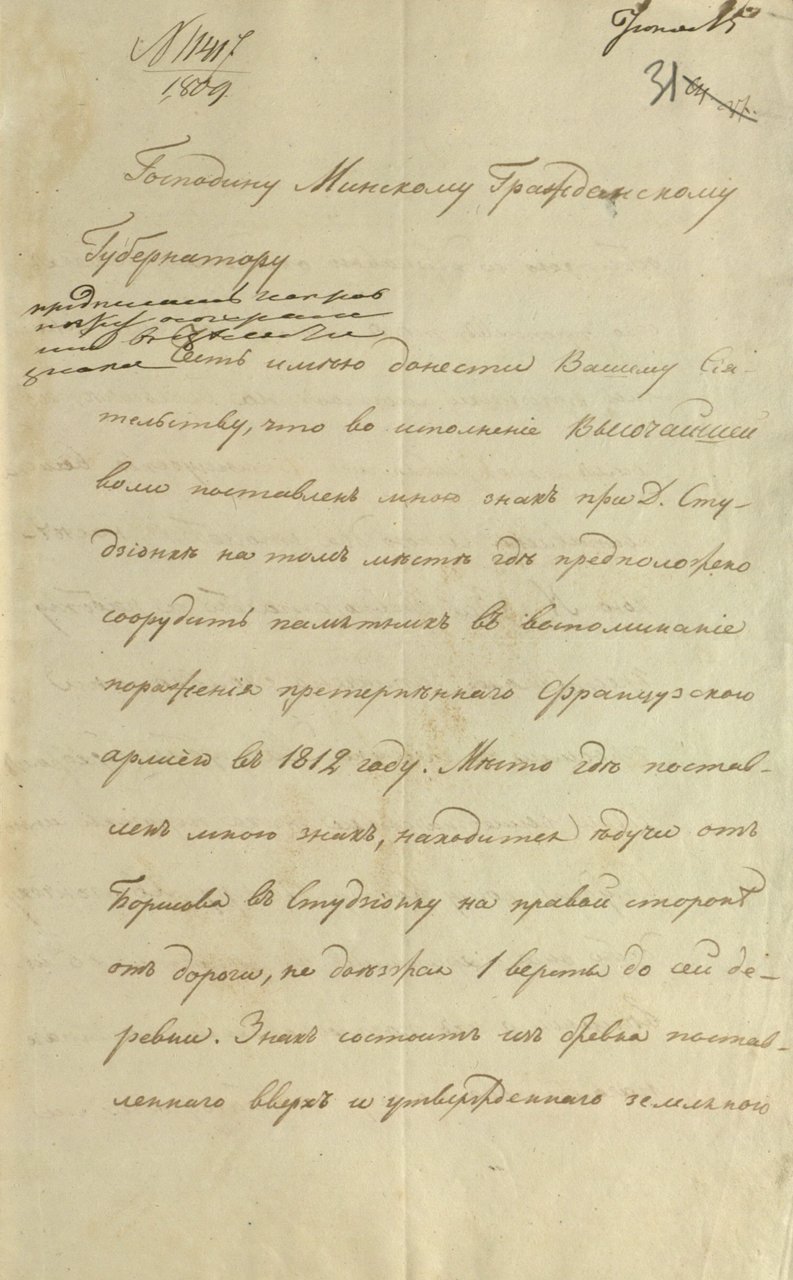 N 11417
1809.
31
Господину Минскому Гражданскому
Губернатору
предписать
Честь имѣю донести Вашему Сія-
тельству, что во исполненіе Высочайшей
воли поставленъ мною знакъ при Д. Сту-
дзіонкѣ на томъ мѣстѣ гдѣ предположено
соорудить памятникъ въ воспоминаніе
пораженія претерпѣннаго Французскою
арміею въ 1812 году. Мѣсто гдѣ постав-
ленъ мною знакъ, находится ѣдучи отъ
Борисова въ Студзіонку на правой сторонѣ
отъ дороги, не доѣзжая 1 версты до сей де-
ревни. Знакъ состоитъ изъ бревна постав-
леннаго вверхъ и утвержденнаго земляною